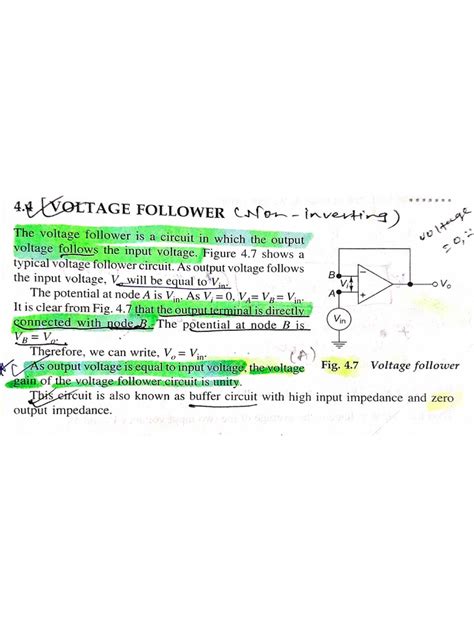 4.4 VOLTAGE FOLLOWER (Non-inverting)
voltage
The voltage follower is a circuit in which the output
voltage follows the input voltage. Figure 4.7 shows a
typical voltage follower circuit. As output voltage follows
the input voltage, Vo will be equal to Vin.
The potential at node A is Vin. As Vi = 0, VA = VB = Vin.
It is clear from Fig. 4.7 that the output terminal is directly
connected with node B. The potential at node B is
VB = Vo.
Therefore, we can write, Vo = Vin.
(A)
As output voltage is equal to input voltage, the voltage
gain of the voltage follower circuit is unity.
This circuit is also known as buffer circuit with high input impedance and zero
output impedance.
B
−
Vi
A
+
Vo
Vin
Fig. 4.7 Voltage follower